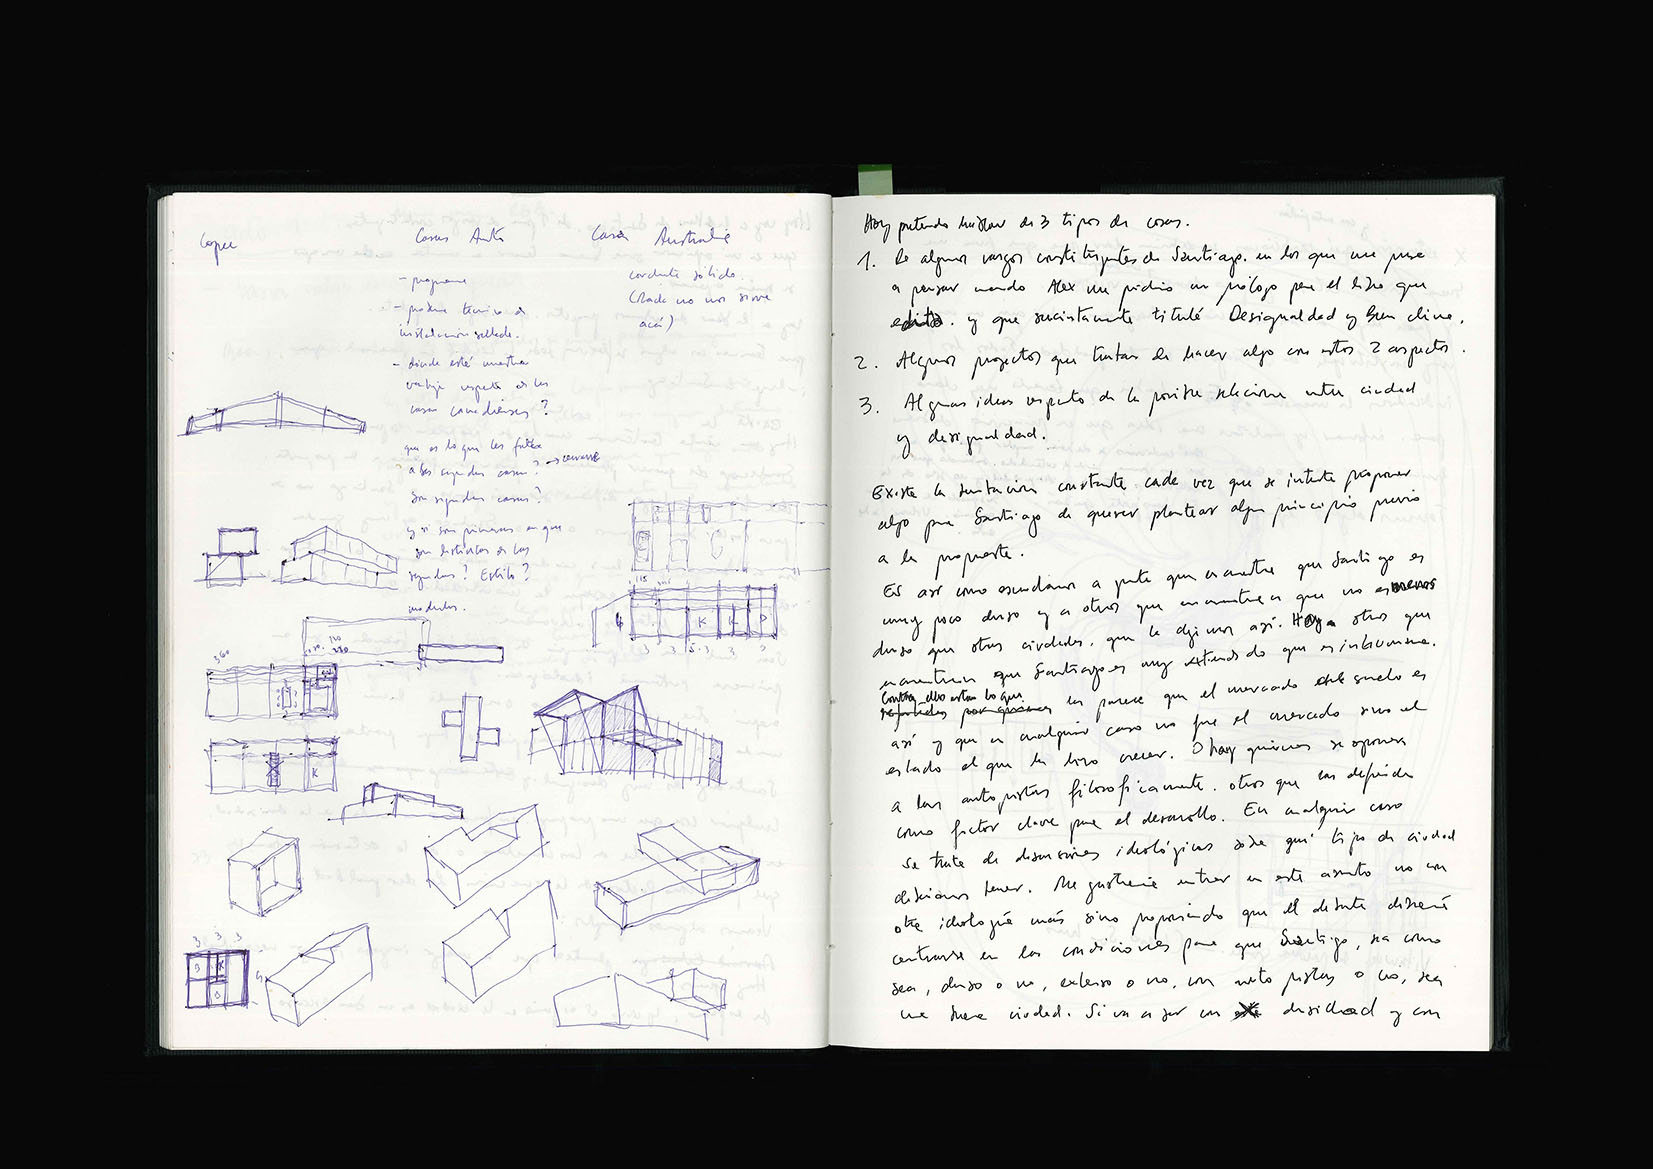 Copec
Casas Anto
- programa
- técnico de
instalación
- dónde está nuestra
ventaja respecto de las
casas canadienses?
que es lo que les falta
a las segundas casas?
Son segundas casas?
y si son primeras en que
son distintas de las
segundas? Estilo?
modulos.
Casa Australia
sólido.
(Rack no nos sirve
acá)
360
115
K
K
D
3 3 3 3
K
3 3 3
3
K
D
9
Hoy pretendo hablar de 3 tipos de cosas.
1. De algunos rasgos constituyentes de Santiago. en los que me puse
a pensar cuando Alex me pidió un prólogo para el libro que
editó. y que sucintamente titulé Desigualdad y Buen clima.
2. Algunos proyectos que tratan de hacer algo con estos 2 aspectos.
3. Algunas ideas respecto de la posible relación entre ciudad
y desigualdad.
Existe la tentación constante cada vez que se intenta proponer
algo para Santiago de querer plantear algún principio previo
a la propuesta.
Es así como escuchamos a gente que encuentra que Santiago es
muy poco denso y a otros que encuentran que no es menos
denso que otras ciudades, que la dejemos así. Hay otros que
encuentran que Santiago es muy extendido que es inhumano.
Contra ellos están los que
les parece que el mercado del suelo es
así y que en cualquier caso no fue el mercado sino el
estado el que la hizo crecer. O hay quienes se oponen
a las autopistas filosóficamente. otros que las defienden
como factor clave para el desarrollo. En cualquier caso
se trata de discusiones ideológicas sobre qué tipo de ciudad
debiéramos tener. Me gustaría entrar en este asunto no con
otra ideología más sino proponiendo que el debate debiera
centrarse en las condiciones para que Santiago, sea como
sea, denso o no, extenso o no, con autopistas o no, sea
una buena ciudad. Si va a ser con densidad y con